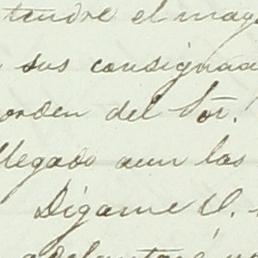 tendré el mayo
sus consignac
orden del Sor.
llegado aun las
Dígame U.
adelantará